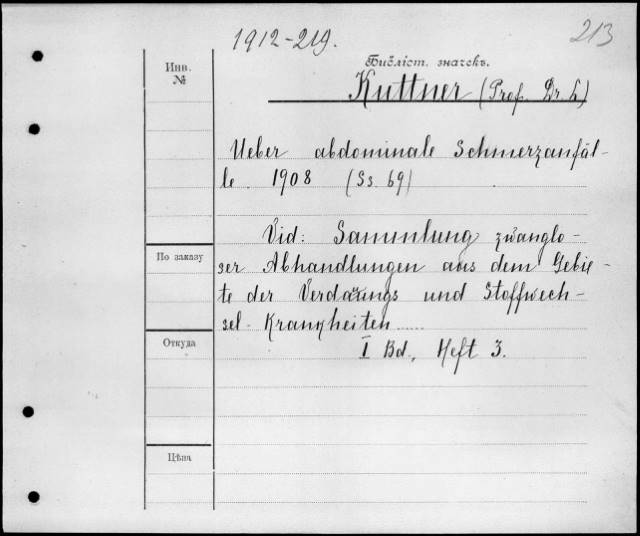 1912-219.
213
Инв.
№
Библіст. значекъ.
Kuttner (Prof. Dr. L)
Ueber abdominale Schmerzanfäl-
le. 1908 (Ss. 69)
Vid: Sammlung zwanglo-
ser Abhandlungen aus dem Gebie-
По заказу
te der Verdauungs und Stoffwech-
sel-Krankheiten.....
Откуда
I Bd., Heft 3.
Цѣна